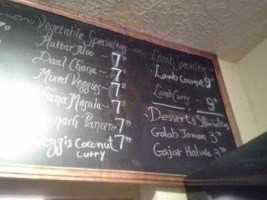 Vegetable Specialties
Mattar Aloo 7
Daal Chana 7
Mixed Veggies 7
Chana Masala 7
Paneer 7
Veggis Coconut 7
Curry
Lamb Specialties
Lamb Coconut 9
Lamb Curry 9
Desserts
Golab Jaman 3
Gajar Halwa 3